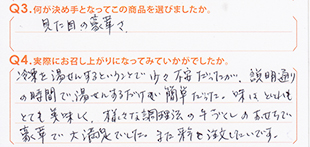 Q3.何が決め手となってこの商品を選びましたか。
見た目の豪華さ
Q4.実際にお召し上がりになってみていかがでしたか。
冷凍を湯せんするということで少々不安だったが、説明通り
の時間で湯せんするだけで簡単だった。味はどれも
とても美味しく、様々な調理法の手づくりのおせちで
豪華で大満足でした。また来年も注文したいです。